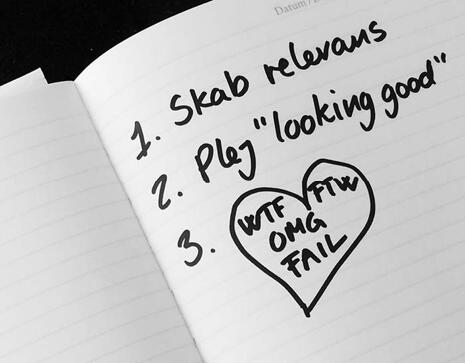 Datum /
1. Skab relevans
2. Plej "looking good"
3. WTF FTW
OMG
FAIL